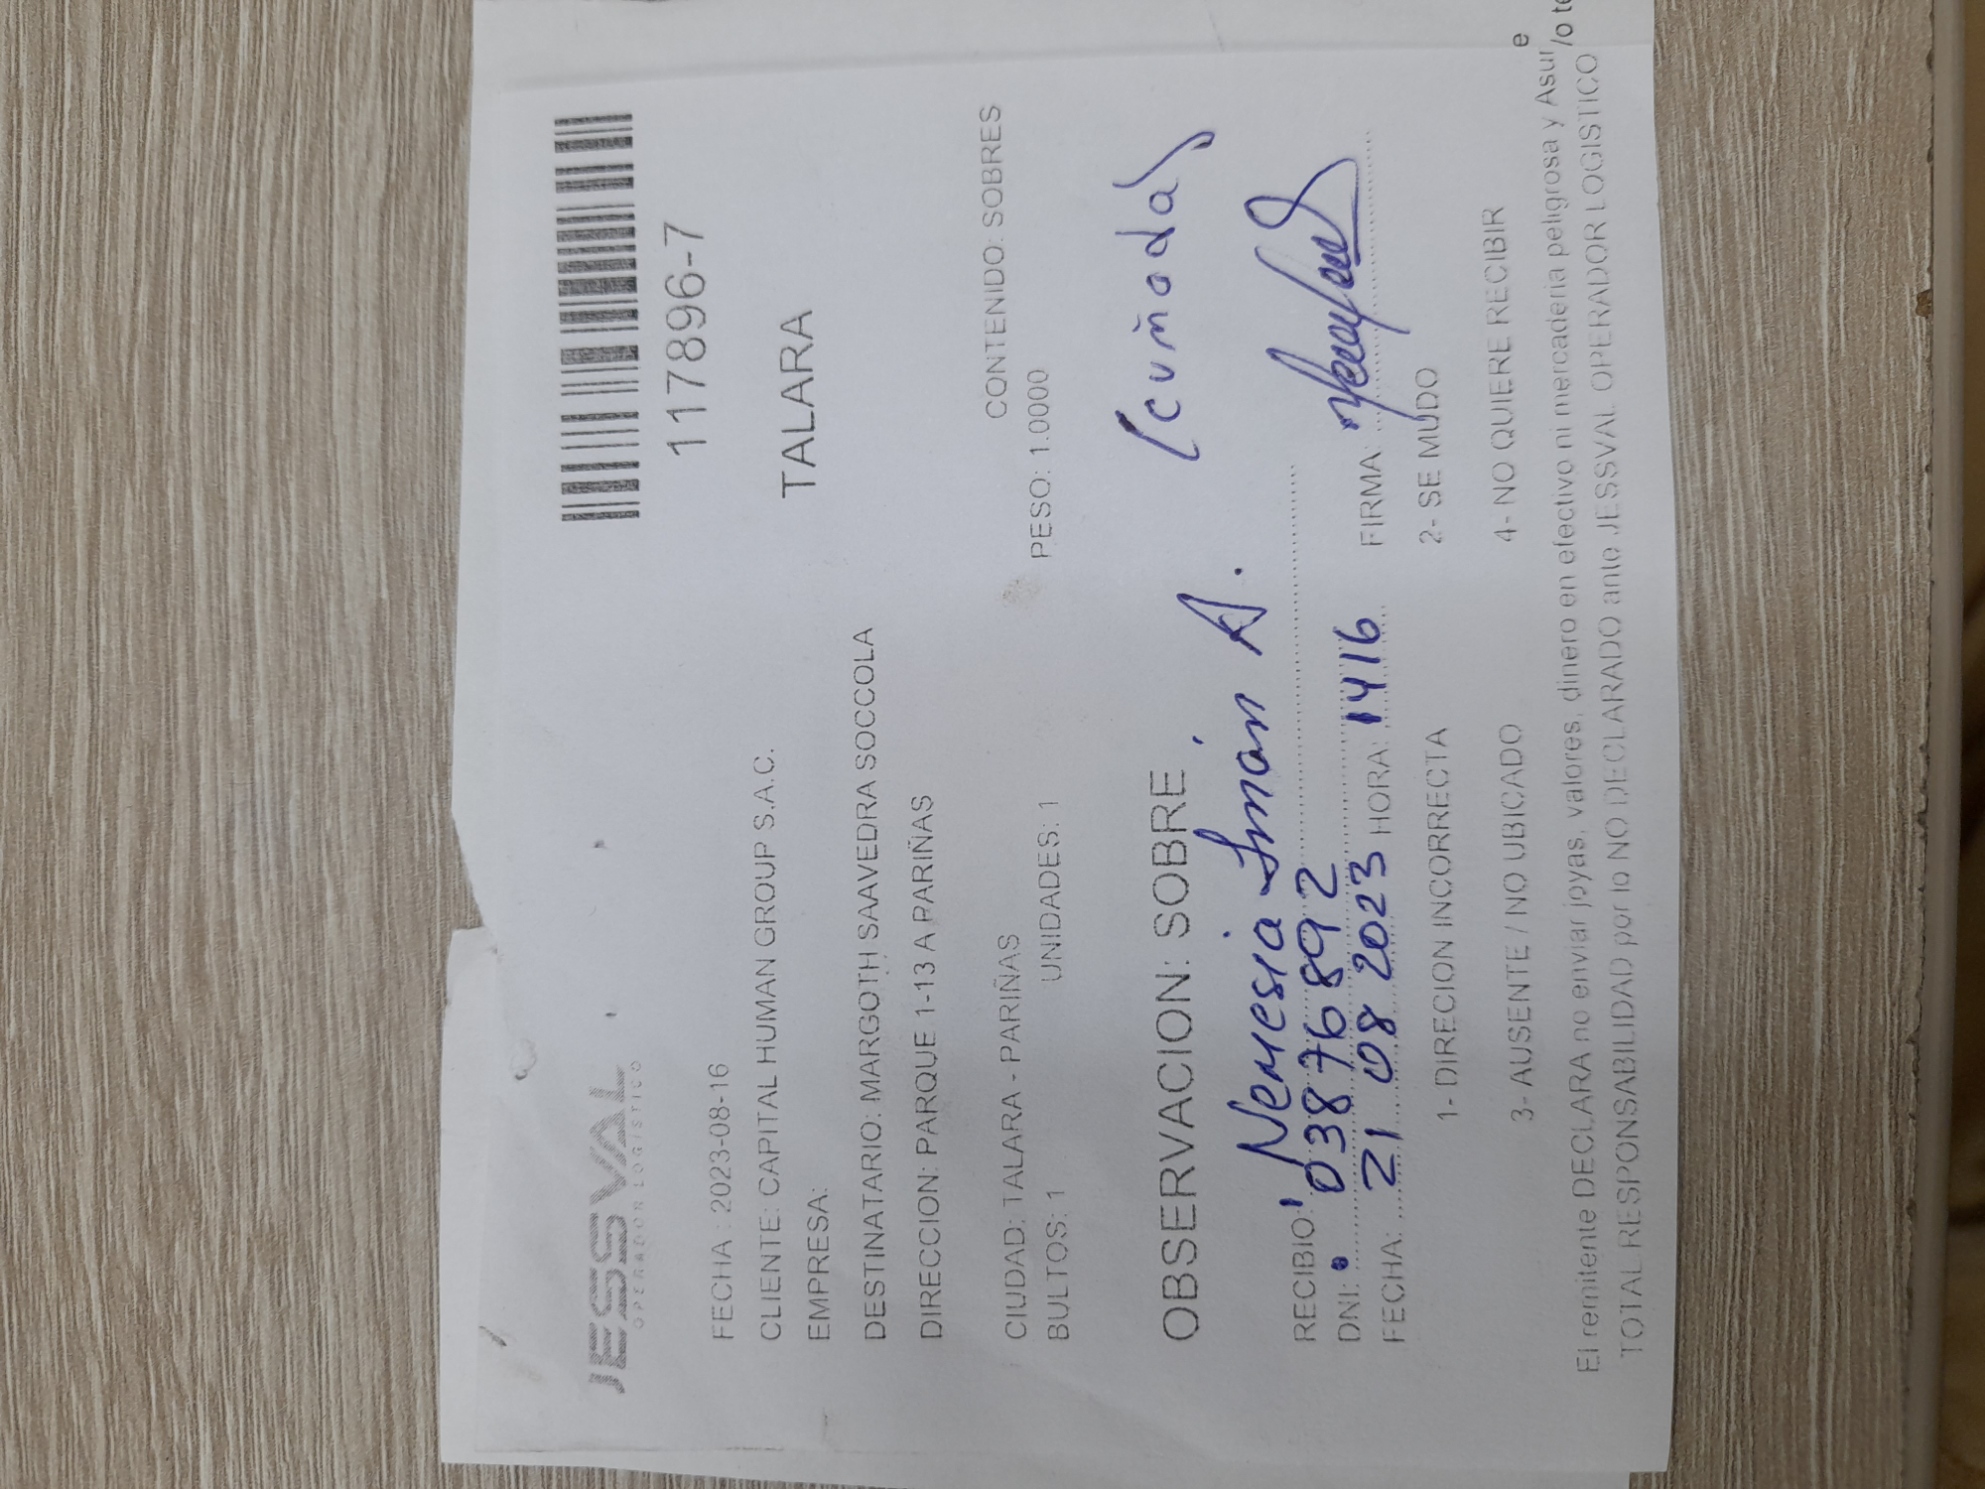 JESSVAL
OPERADOR LOGÍSTICO
117896-7
FECHA : 2023-08-16
CLIENTE: CAPITAL HUMAN GROUP S.A.C.
TALARA
EMPRESA:
DESTINATARIO: MARGOTH SAAVEDRA SOCCOLA
DIRECCION: PARQUE 1-13 A PARIÑAS
CONTENIDO: SOBRES
CIUDAD: TALARA - PARIÑAS
BULTOS: 1 UNIDADES: 1 PESO: 1.0000
(cuñada)
OBSERVACION: SOBRE
RECIBIO: Nemesia Imán A.
DNI: 03876892
FECHA: 21 08 2023 HORA: 1416 FIRMA:
1- DIRECION INCORRECTA 2- SE MUDO
3- AUSENTE / NO UBICADO 4- NO QUIERE RECIBIR
El remitente DECLARA no enviar joyas, valores, dinero en efectivo ni mercaderia peligrosa y Asur
TOTAL RESPONSABILIDAD por lo NO DECLARADO ante JESSVAL OPERADOR LOGISTICO
e
/o te